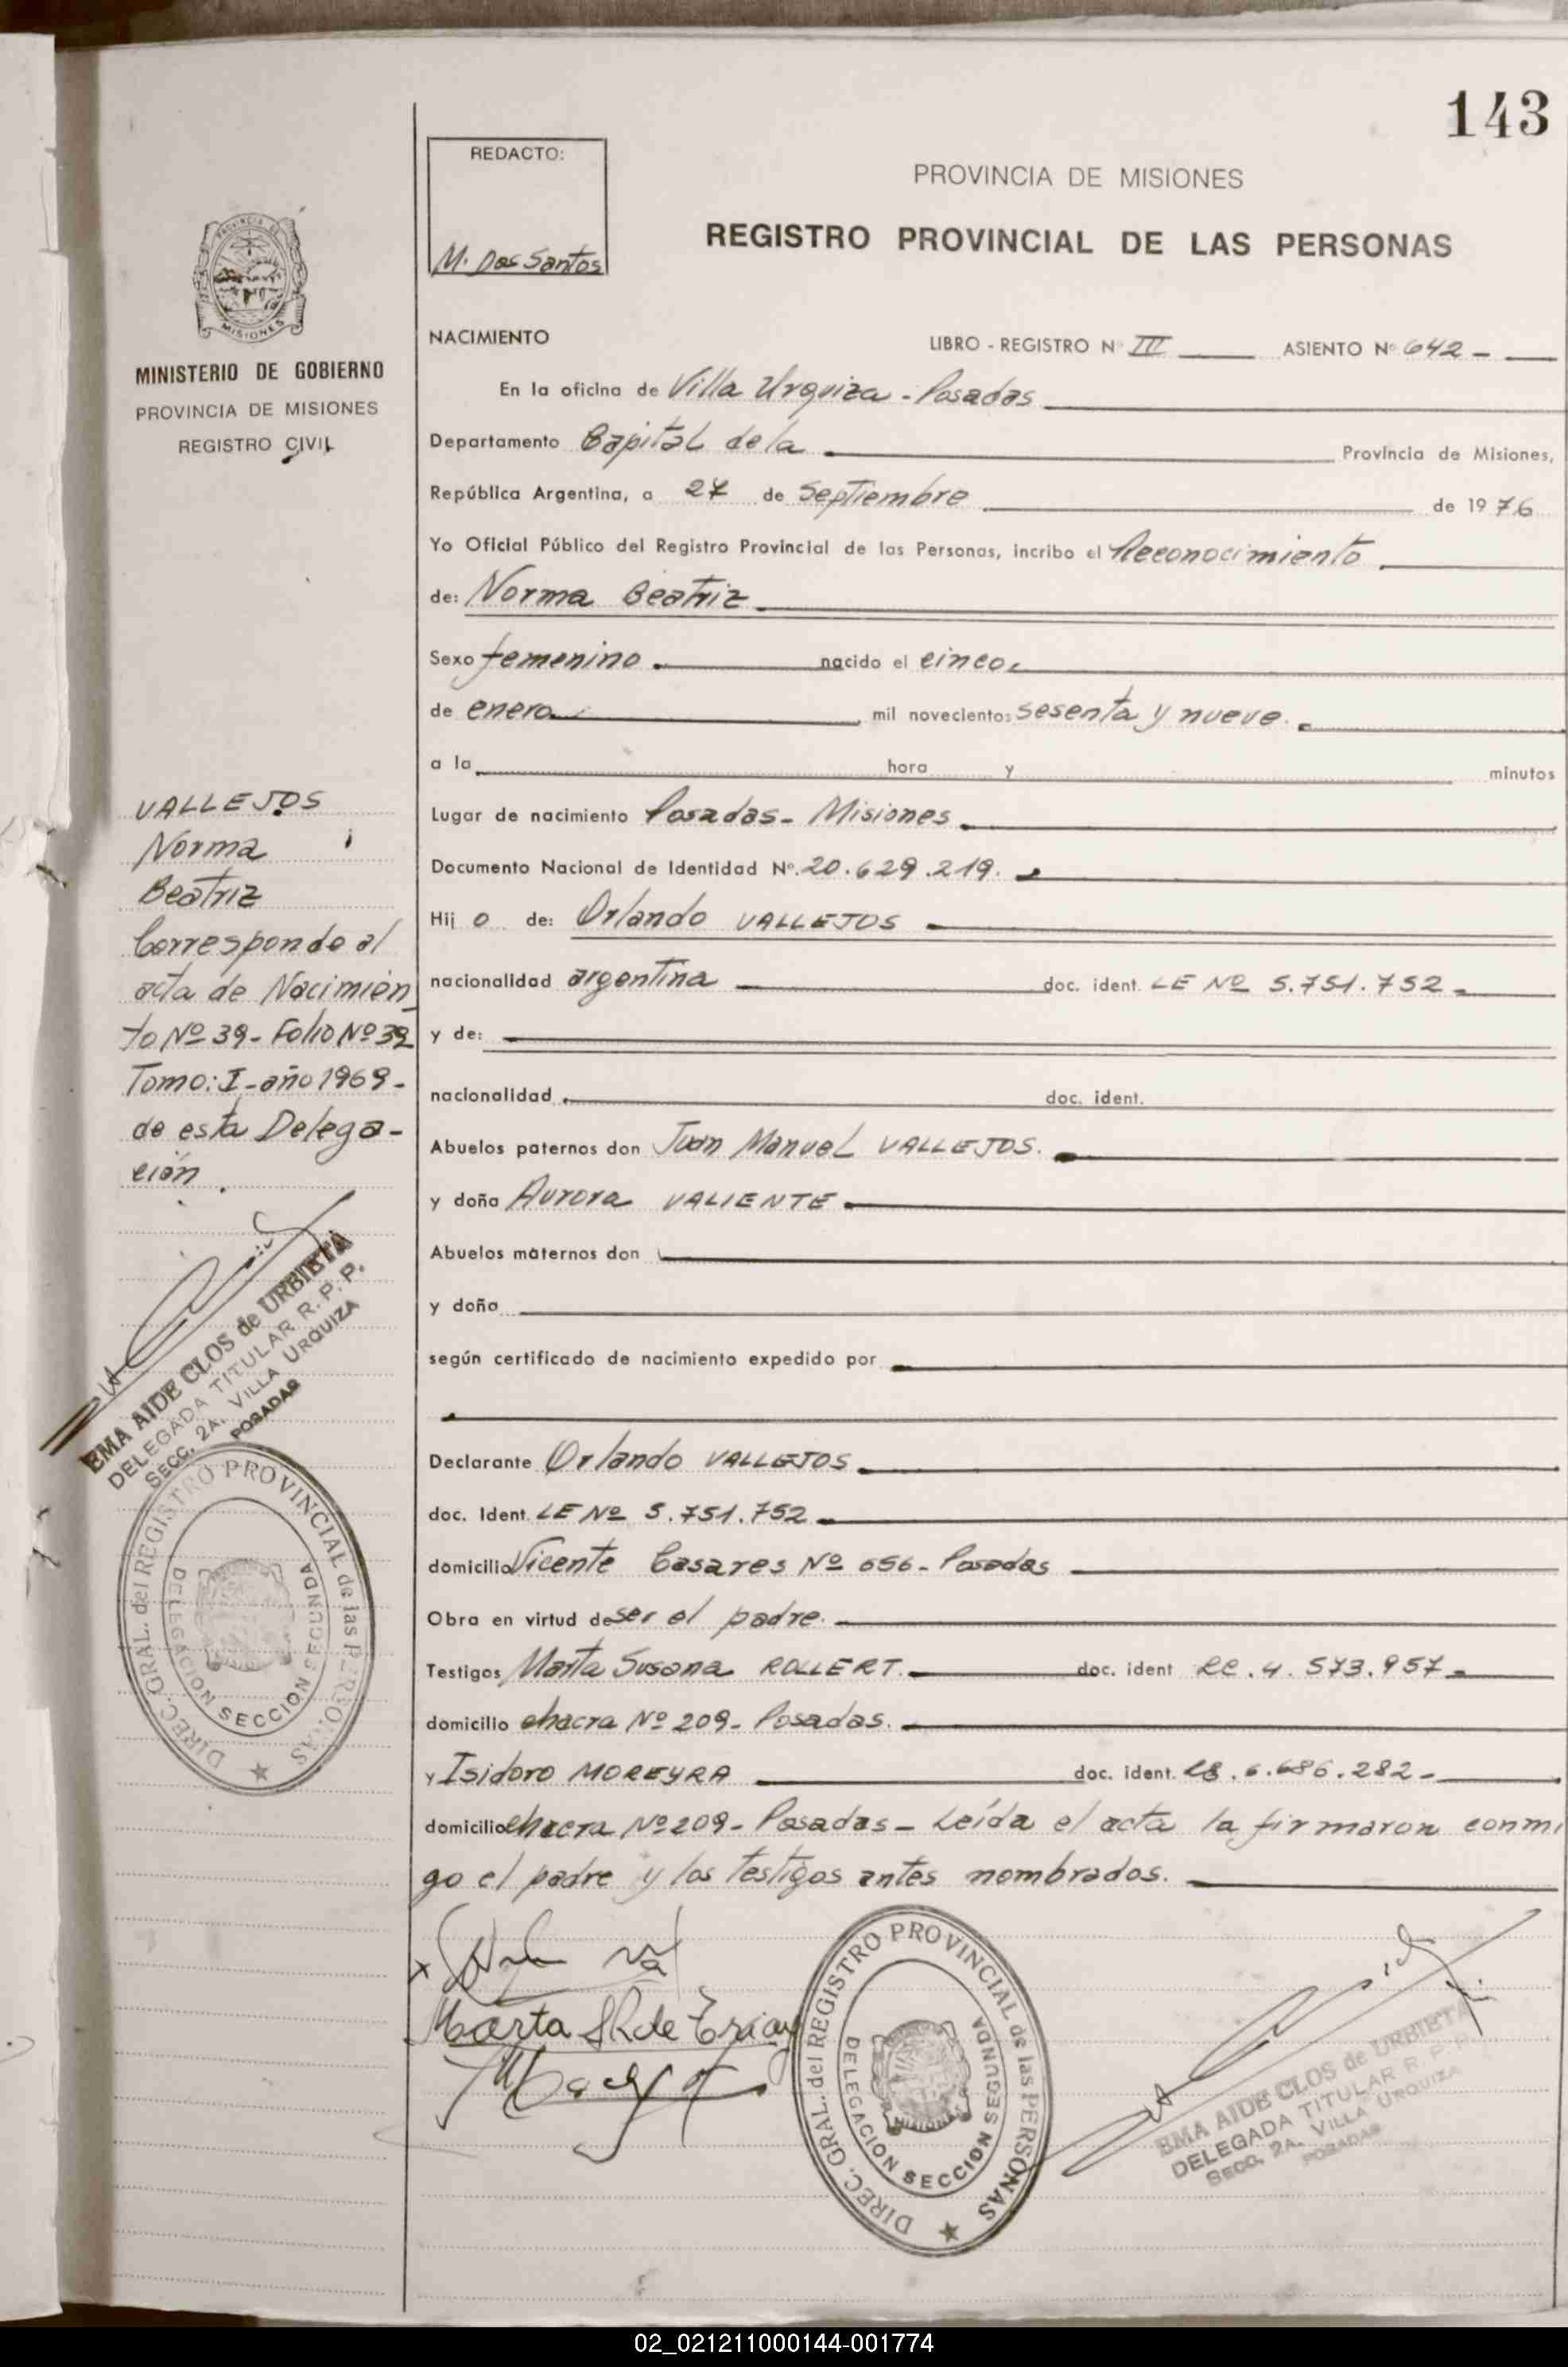 143
REDACTO:
M. Dos Santos
PROVINCIA DE MISIONES
REGISTRO PROVINCIAL DE LAS PERSONAS
PROVINCIA DE
MISIONES
MINISTERIO DE GOBIERNO
PROVINCIA DE MISIONES
REGISTRO CIVIL
NACIMIENTO LIBRO - REGISTRO Nº III ASIENTO Nº 642 -
En la oficina de Villa Urquiza - Posadas
Departamento Capital de la Provincia de Misiones,
República Argentina, a 27 de Septiembre de 1976
Yo Oficial Público del Registro Provincial de las Personas, incribo el Reconocimiento
de: Norma Beatriz
Sexo femenino. nacido el cinco
de enero mil novecientos sesenta y nueve.
a la hora y minutos
Lugar de nacimiento Posadas - Misiones
Documento Nacional de Identidad Nº. 20.629.219.
Hij o de: Orlando VALLEJOS
nacionalidad argentina doc. ident. LE Nº 5.751.752 -
y de:
nacionalidad doc. ident.
Abuelos paternos don Juan Manuel VALLEJOS.
y doña Aurora VALIENTE
Abuelos maternos don
y doña
según certificado de nacimiento expedido por
Declarante Orlando VALLEJOS
doc. Ident. LE Nº 5.751.752
domicilio Vicente Casares Nº 656 - Posadas
Obra en virtud de ser el padre.
Testigos Marta Susana ROLLERT. doc. ident LC. 4.573.957 -
domicilio chacra Nº 209 - Posadas.
y Isidoro MOREYRA doc. ident. 6.686.282 -
domicilio chacra Nº 209 - Posadas - Leída el acta la firmaron conmi
go el padre y los testigos antes nombrados.
Marta SR de
VALLEJOS
Norma
Beatriz
Corresponde al
acta de Nacimien
to Nº 39 - Folio Nº 39
Tomo: I - año 1969 -
de esta Delega-
ción.
EMA AIDE CLOS de URBIETA
DELEGADA TITULAR R. P. P.
SECC. 2A. VILLA URQUIZA
POSADAS
DIREC. GRAL. del REGISTRO PROVINCIAL de las PERSONAS
DELEGACION SECCION SEGUNDA
DIREC. GRAL. del REGISTRO PROVINCIAL de las PERSONAS
DELEGACION SECCION SEGUNDA
MISIONES
EMA AIDE CLOS de URBIETA
DELEGADA TITULAR R. P. P.
SECC. 2A. VILLA URQUIZA
POSADAS
02_021211000144-001774